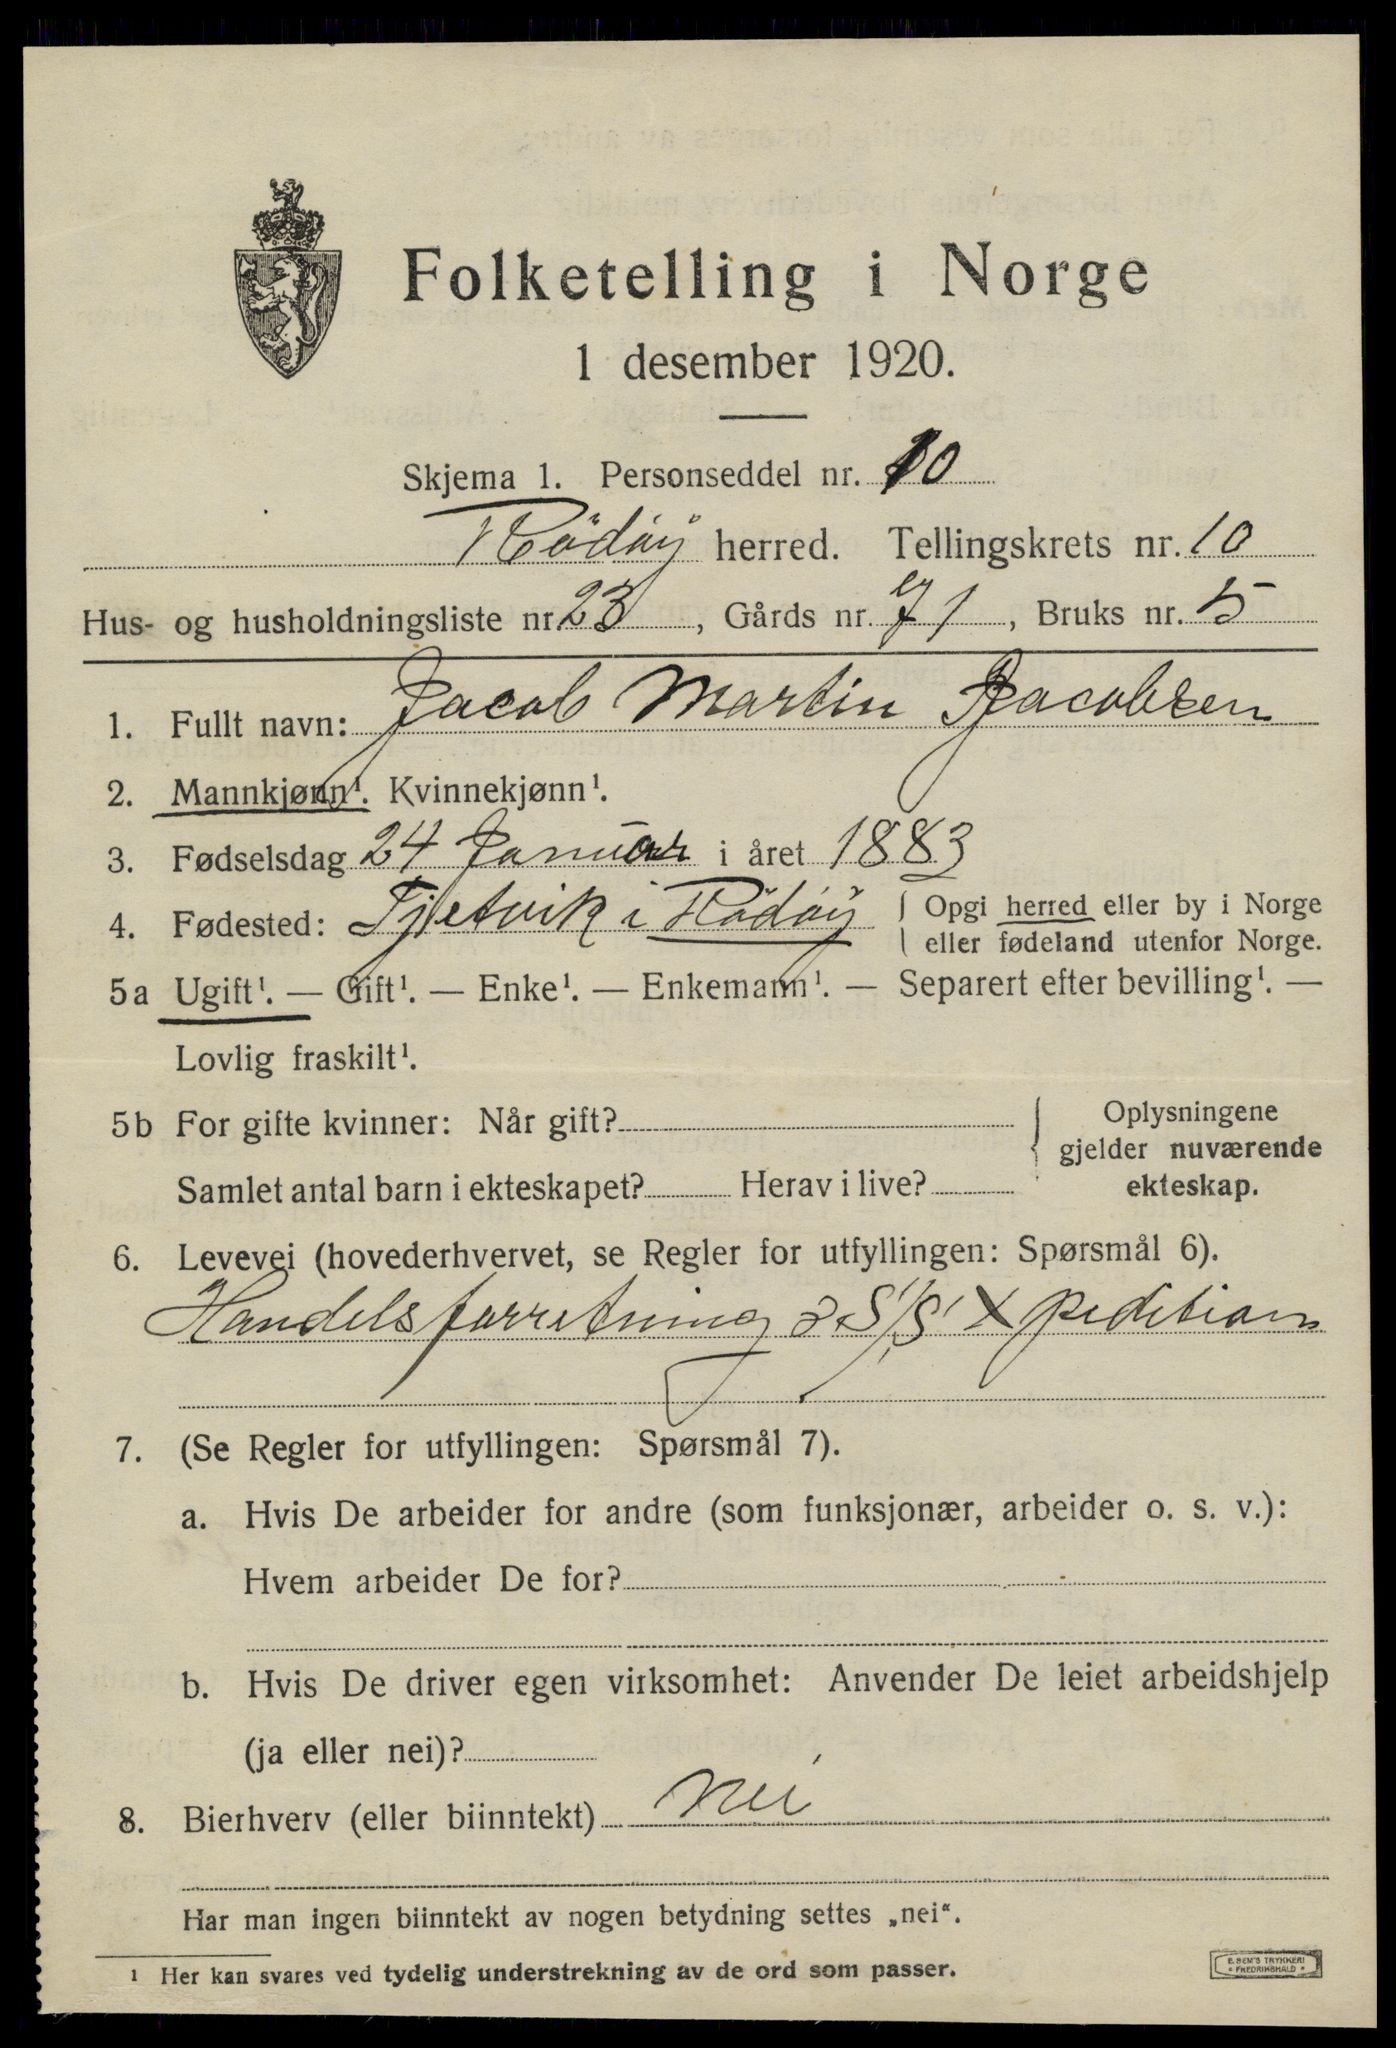 Folketelling i Norge
1 desember 1920.
Skjema 1. Personseddel nr. 10
Rödöy herred. Tellingskrets nr. 10
Hus- og husholdningsliste nr. 23, Gårds nr. 71, Bruks nr. 5
1. Fullt navn: Jacob Martin Jacobsen
2. Mannkjønn¹. Kvinnekjønn¹.
3. Fødselsdag 24 Januar i året 1883
4. Fødested: Tjetvik i Rödöy { Opgi herred eller by i Norge
eller fødeland utenfor Norge.
5a Ugift¹. — Gift¹. — Enke¹. — Enkemann¹. — Separert efter bevilling¹. —
Lovlig fraskilt¹.
5b For gifte kvinner: Når gift? { Oplysningene
gjelder nuværende
Samlet antal barn i ekteskapet? Herav i live? ekteskap.
6. Levevei (hovederhvervet, se Regler for utfyllingen: Spørsmål 6).
Handelsforretning S/S Xpedition
7. (Se Regler for utfyllingen: Spørsmål 7).
a. Hvis De arbeider for andre (som funksjonær, arbeider o. s. v.):
Hvem arbeider De for?
b. Hvis De driver egen virksomhet: Anvender De leiet arbeidshjelp
(ja eller nei)?
8. Bierhverv (eller biinntekt) Nei
Har man ingen biinntekt av nogen betydning settes „nei“.
¹ Her kan svares ved tydelig understrekning av de ord som passer.
E. SEM'S TRYKKERI
* FREDRIKSHALD *